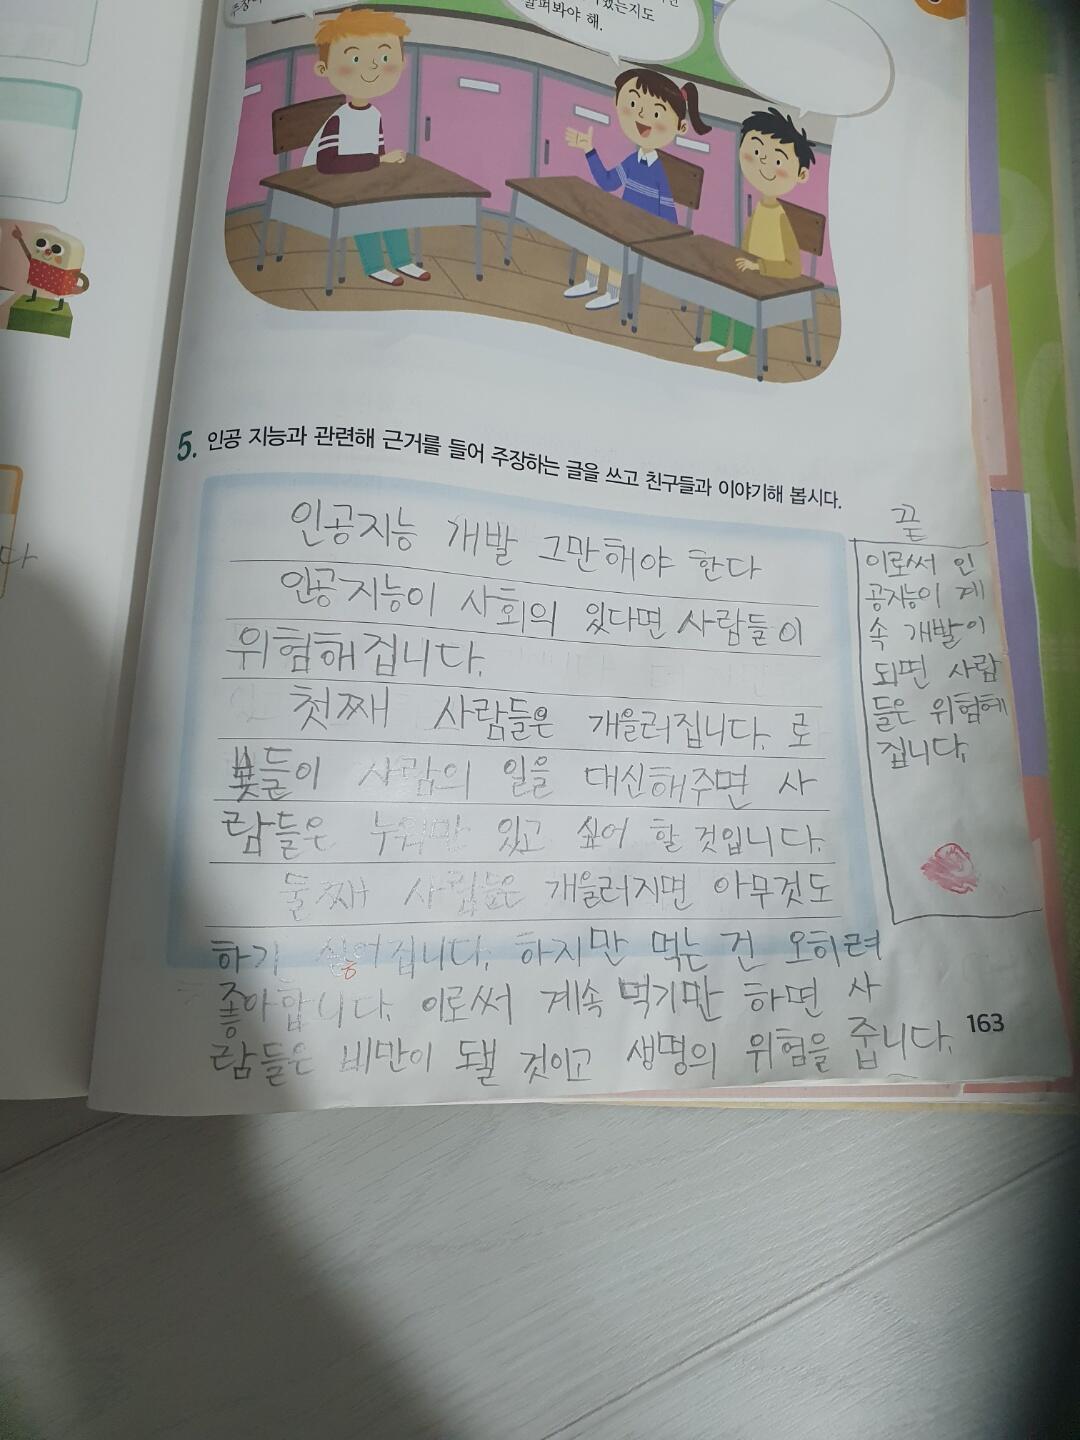 살펴봐야 해.
5. 인공 지능과 관련해 근거를 들어 주장하는 글을 쓰고 친구들과 이야기해 봅시다.
인공지능 개발 그만해야 한다
인공지능이 사회의 있다면 사람들이
위험해집니다.
첫째 사람들은 개을러집니다. 로
봇들이 사람의 일을 대신해주면 사
람들은 누워만 있고 싶어 할 것입니다.
둘째 사람들은 개을러지면 아무것도
하기 싫어집니다. 하지만 먹는 건 오히려
좋아합니다. 이로써 계속 먹기만 하면 사
람들은 비만이 될 것이고 생명의 위험을 줍니다.
끝
이로써 인
공지능이 계
속 개발이
되면 사람
들은 위험해
집니다.
163
다